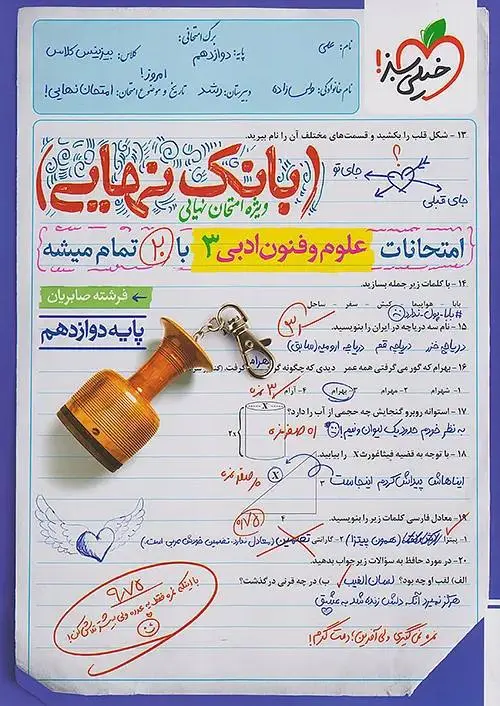 خیلی سبز!
برگ امتحانی:
نام: علی
پایه: دوازدهم
کلاس: بیزینس کلاس
نام خانوادگی:
دبیرستان: رشد
امروز!
تاریخ و موضوع امتحان: امتحان نهایی!
۱۳ - شکل قلب را بکشید و قسمت‌های مختلف آن را نام ببرید.
(بانک نهایی)
ویژه امتحان نهایی
؟
جای تو
جای قبلی
امتحانات علوم و فنون ادبی ۳ با ۲۰ تمام میشه
۱۴ - با کلمات زیر جمله بسازید.
بابا - هواپیما - کیش - سفر - ساحل
#بابا_پول_نداره
فرشته صابریان
۱۵ - نام سه دریاچه در ایران را بنویسید.
دریاچه خزر دریاچه قم دریاچه ارومیه (سابق)
پایه دوازدهم
بهرام
۱۶ - بهرام که گور می‌گرفتی همه عمر دیدی که چگونه گور بهرام گرفت.
۱- شهرام ۲- مهرام ۳- بهرام ۴- آرام
۱۷ - استوانه روبرو گنجایش چه حجمی از آب را دارد؟
به نظر خودم حدود یک لیوان و نیم!
X
2x
۱۸ - با توجه به قضیه فیثاغورث X را بیابید.
ایناهاش پیداش کردم اینجاست
X
۳
۴
۱۹ - معادل فارسی کلمات زیر را بنویسید.
۱- پیتزا (همون پیتزا) ۲- گارانتی تضمین (معادل ندارد. تضمین خودش عربی است.)
۲۰ - در مورد حافظ به سؤالات زیر جواب بدهید.
الف) لقب او چه بود؟ لسان الغیب ب) در چه قرنی درگذشت؟
هرگز نمیرد آنکه دلش زنده شد به عشق
نمره نمی‌گیری ولی آفرین! دمت گرم!